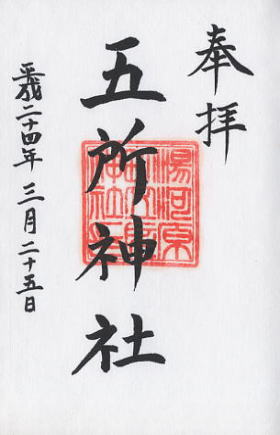 奉拝
五所神社
湯河原
平成二十四年 三月二十五日